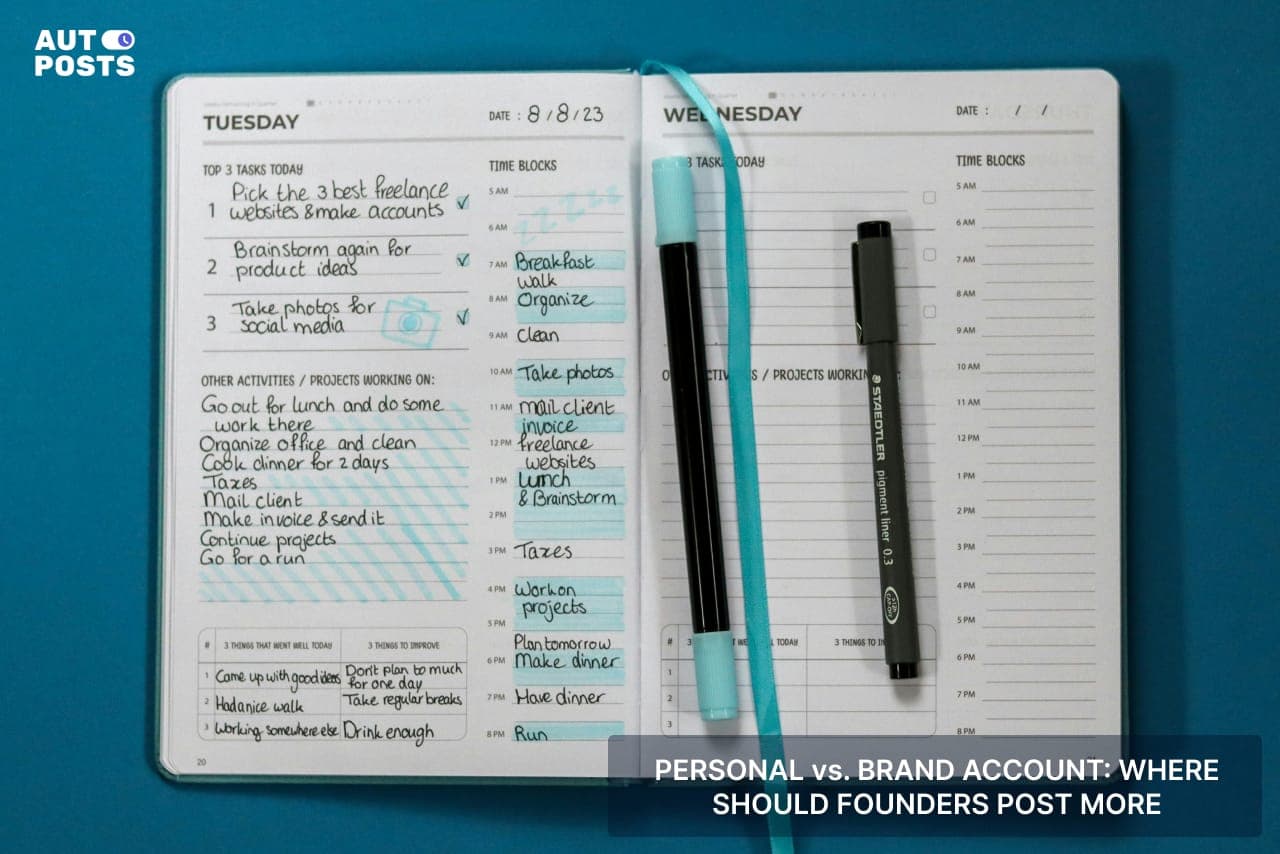 AUTO
POSTS
TUESDAY
DATE : 8/8/23
TOP 3 TASKS TODAY
1 Pick the 3 best freelance
websites & make accounts
2 Brainstorm again for
product ideas
3 Take photos for
social media
OTHER ACTIVITIES / PROJECTS WORKING ON:
Go out for lunch and do some
work there
Organize office and clean
Cook dinner for 2 days
Taxes
Mail client
Make invoice & send it
Continue projects
Go for a run
# 3 THINGS THAT WENT WELL TODAY 3 THINGS TO IMPROVE
1 Came up with good ideas Don't plan to much
for one day
2 Had a nice walk Take regular breaks
3 Working somewhere else Drink enough
20
TIME BLOCKS
5 AM
zzzzz
6 AM
7 AM Breakfast
walk
8 AM Organize
9 AM Clean
10 AM Take photos
11 AM mail client
invoice
12 PM freelance
websites
1 PM Lunch
& Brainstorm
2 PM
3 PM Taxes
4 PM Work on
projects
5 PM
Plan tomorrow
6 PM Make dinner
7 PM Have dinner
8 PM Run
WEDNESDAY
DATE : / /
3 TASKS TODAY
/ PROJECTS WORKIN
# 3 WENT WELL TODAY 3 THINGS TO
1
2
3
TIME BLOCKS
5 AM
6 AM
7 AM
8 AM
9 AM
10 AM
11 AM
12 PM
1 PM
2 PM
3 PM
4 PM
5 PM
6 PM
7 PM
8 PM
STAEDTLER pigment liner 0.3
PERSONAL vs. BRAND ACCOUNT: WHERE
SHOULD FOUNDERS POST MORE